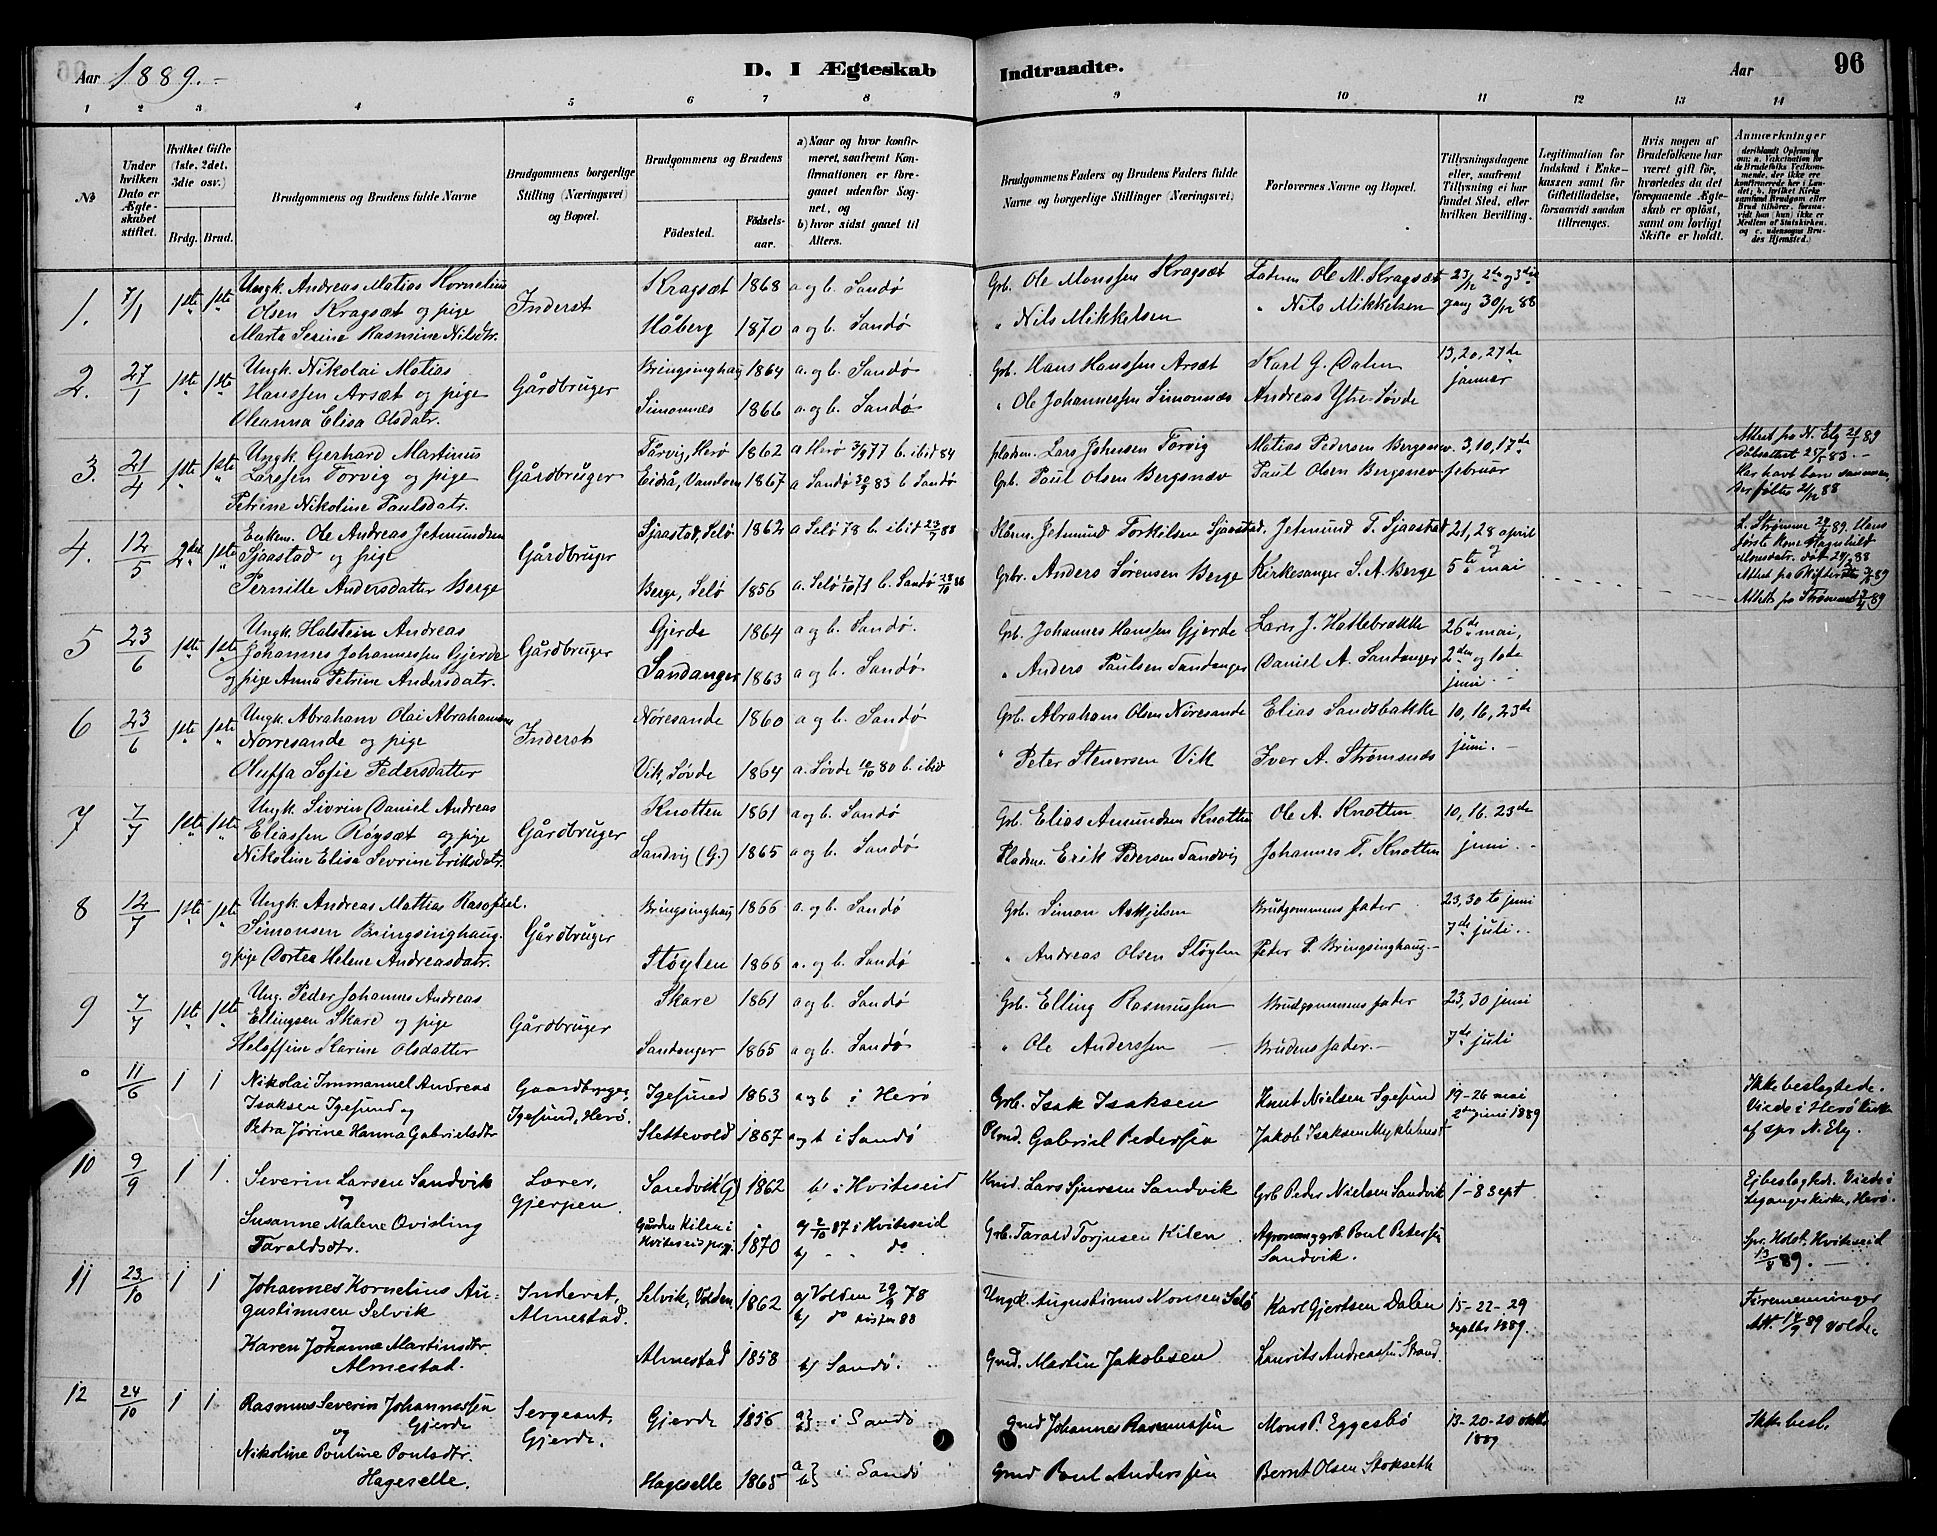 Aar 1889.-
D. I Ægteskab Indtraadte.
Aar 96
1 2 3 4 5 6 7 8 9 10 11 12 13 14
No
Under hvilken Dato er Ægteskabet stiftet.
Hvilket Gifte (1ste, 2det, 3dte osv.)
Brdg. Brud.
Brudgommens og Brudens fulde Navne
Brudgommens borgerlige Stilling (Næringsvei) og Bopæl.
Brudgommens og Brudens
Fødested.
Fødselsaar.
a) Naar og hvor konfirmeret, saafremt Konfirmationen er foregaaet udenfor Sognet, og
b) hvor sidst gaaet til Alters.
Brudgommens Faders og Brudens Faders fulde Navne og borgerlige Stillinger (Næringsvei)
Forlovernes Navne og Bopæl.
Tillysningsdagene eller, saafremt Tillysning ei har fundet Sted, efter hvilken Bevilling.
Legitimation for Indskud i Enkekassen samt for Giftetilladelse, forsaavidt saadan tiltrænges.
Hvis nogen af Brudefolkene har været gift før, hvorledes da det foregaaende Ægteskab er opløst, samt om lovligt Skifte er holdt.
Anmærkninger
1. 7/1 1ste 1ste
Ungk. Andreas Matias Kornelius
Olsen Kragsæt og pige
Marta Serine Rasmine Nilsdtr.
Inderst
Kragsæt 1868 a og b. Sandø
Håberg 1870 a og b. Sandø
Grb. Ole Monssen Kragsæt
" Nils Mikkelsen
Faderen Ole M. Kragsæt
" Nils Mikkelsen
23/12 2den og 3die
gang 30/12 88
2. 27/1 1ste 1ste
Ungk. Nikolai Matias
Hanssen Arsæt og pige
Oleanna Elisa Olsdatr.
Gårdbruger
Bringsinghaug 1864 a. og b. Sandø
Simonnes 1866 a. og b. Sandø
Grb. Hans Hanssen Arsæt
" Ole Johannessen Simonnes
Karl G. Dalen
Andreas Ytre-Søvde
13, 20, 27de
januar
3. 21/4 1ste 1ste
Ungk. Gerhard Martinus
Larssen Torvig og pige
Petrine Nikoline Paulsdatr.
Gårdbruger
Tårvig, Herø 1862 a Herø 77 b. ibid 84
Eidså, Vandven 1867 a Sandø 83 b Sandø
pladsm. Lars Johnsen Torvig
Grb. Paul Olsen Bergsnæv
Matias Pedersen Bergsnev
Paul Olsen Bergsnev
3, 10, 17de
februar
Attest fra N. Ely 89
Dåbsattest 83.-
Har havt barn sammen,
der fødtes 88
4. 12/5 2det 1ste
Enkem. Ole Andreas Jetmundsen
Sjaastad og pige
Pernille Andersdatter Berge
Gårdbruger
Sjaastad, Selø 1862 a Selø 78 b. ibid 88
Berge, Selø 1856 a. Selø 71 b. Sandø 28/10 88
Jetmund Torkilsen Sjaastad.
Grbr. Anders Sørensen Berge
Jetmund T. Sjaastad
Kirkesanger S. A. Berge
21, 28 april
5te mai
L. Strømme 89. Hans
første kone Magnhild
død 88
5 23/6 1ste 1ste
Ungk. Halstein Andreas
Johannes Johannessen Gjerde
og pige Anna Petrine Andersdatr.
Gårdbruger
Gjerde 1864 a og b. Sandø.
Sandanger 1863 a og b. Sandø.
Grb. Johannes Hanssen Gjerde
" Anders Paulsen Sandanger
Lars J. Hattebrække
Daniel A. Sandanger
26de mai,
2den og 10de
juni.
6 23/6 1ste 1ste
Ungk. Abraham Olai Abrahamsen
Norresande og pige
Oluffa Sofie Pedersdatter
Inderst
Nøresande 1860 a og b. Sandø
Vik, Søvde 1864 a. Søvde 80 b. ibid
Grb. Abraham Olsen Nøresande
" Peter Stenersen Vik
Elias Sandsbakke
Iver A. Strømsnes
10, 16, 23de
juni.-
7 7/7 1ste 1ste
Ungk. Sivrin Daniel Andreas
Eliassen Røysæt og pige
Nikoline Elisa Sevrine Eriksdatr.
Gårdbruger
Knotten 1861 a og b. Sandø
Sandvig (G.) 1865 a og b. Sandø
Grb. Elias Amundsen Knotten
Pladsm. Erik Pedersen Sandvig
Ole A. Knotten
Johannes T. Knotten
10, 16. 23de
juni.
8 12/7 1ste 1ste
Ungk. Andreas Mathias
Simonsen Bringsinghaug.
og pige Dortea Helene Andreasdatr.
Gårdbruger
Bringsinghaug 1866 a. og b. Sandø
Støylen 1866 a. og b. Sandø
Grb. Simon Askjelsen
" Andreas Olsen Støylen
Brudgommens fader
Peder P. Bringsinghaug.-
23, 30te juni
7de juli..
9 7/7 1ste 1ste
Ung. Peder Johannes Andreas
Ellingsen Skare og pige
Karine Olsdatter
Gårdbruger
Skare 1861 a og b. Sandø
Sandanger 1865 a og b. Sandø
Grb. Elling Rasmussen
" Ole Anderssen
Brudgommens fader
Brudens fader.-
23, 30 juni
7de juli
11/6 1 1
Nikolai Immanuel Andreas
Isaksen Igesund og
Petra Jørine Hanna Gabrielsdtr
Gaardbruger,
Igesund, Herø.
Igesund 1863 a og b i Herø
Slettevold 1867 a og b i Sandø
Grb. Isak Isaksen
Plmd. Gabriel Pedersen
Knut Nielsen Igesund
Jakob Isaksen Myklebust
19-26 mai
2den juni 1889
Ikke beslægtede.
Viede i Herø Kirke
af spr N. Ely.
10 9/9 1 1.
Severin Larsen Sandvik
og
Susanne Malene Qvisling
Taraldsdtr.
Lærer,
Gjerpen.
Sandvik (G) 1862 b/ i Hviteseid
Gården Kilen i
Hviteseid prgj. 1870 a/ 2/10 87 i Hviteseid
b/ do
Lars Sjursen Sandvik
Grb. Tarald Torjusen Kilen
Grb Peder Nielsen Sandvik
Agronom og grb. Poul Petersen
Sandvik.
1-8 sept.
Ej beslægtede. Viede i
Leganger kirke, Herø.
Spr. Holst, Hviteseid
13/8 89.
11 23/10 1 1
Johannes Kornelius Au-
gustinusen Selvik
og
Karen Johanne Martinsdtr.
Almestad.
Inderst,
Almestad.
Selvik, Volden 1862 a/ Volden 29/9 78
b/ do høsten 88
Almestad 1858 b/ Sandø.
Ungk. Augustinus Monsen Selø
Gmd. Martin Jakobsen
Karl Gjertsen Dalen
Laurits Andreassen Strand.
15-22-29
septbr 1889.
Firemenninger
Att. 14/9 89 Volden
12 24/10 1 1
Rasmus Severin Johannessen
og Gjerde
Nikoline Pouline Poulsdtr.
Hageselle.
Sergeant,
Gjerde.
Gjerde 1856 a/ b/ i Sandø
Hageselle 1865 a/ b/ i Sandø
Gmd Johannes Rasmussen
Gmd Poul Anderssen
Mons P. Eggesbø
Bernt Olsen Stokseth
13-20-20 oktbr
1889
Ikke besl.